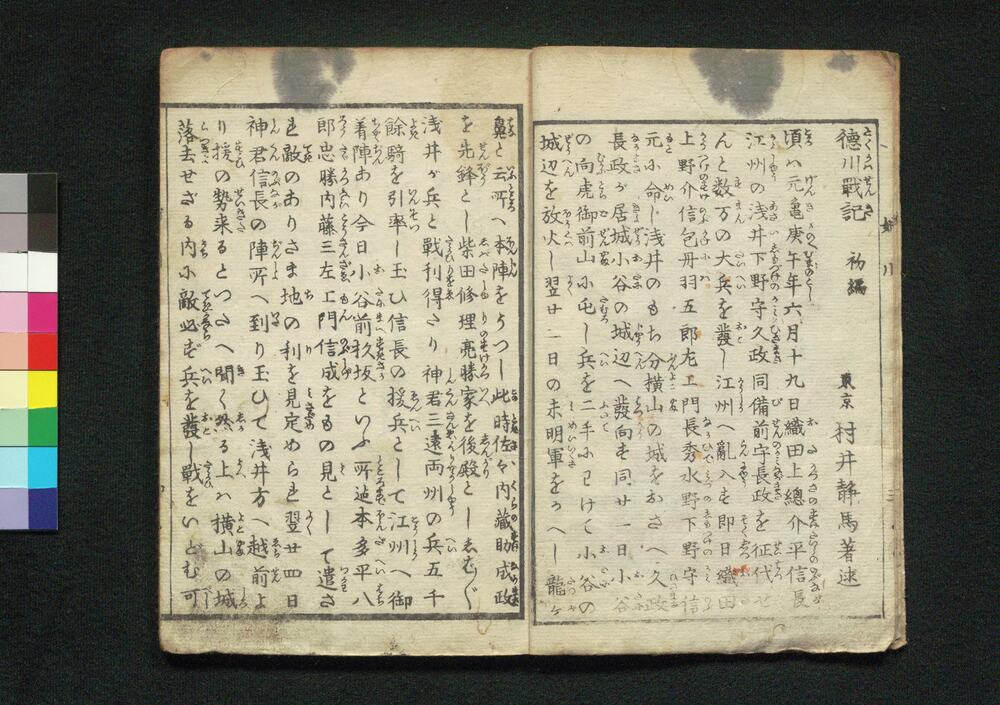 徳川戰記　初編　東京　村井静馬著述
頃ハ元亀庚午年六月十九日織田上總介平信長
江州の浅井下野守久政同備前守長政を征伐せ
んと数万の大兵を發し江州へ亂入す即日織田
上野介信包丹羽五郎左エ門長秀水野下野守信
元小命し浅井のもち分横山の城をおさへ久政
長政が居城小谷の城辺へ發向す同廿一日小谷
の向虎御前山小屯し兵を二手にわけて小谷の
城辺を放火し翌廿二日の未明軍をかへし龍ヶ
鼻と云所へ本陣をうつし此時佐々内藏助成政
を先鋒とし柴田修理亮勝家を後殿としまむく
浅井が兵と戰利得たり神君三遠両州の兵五千
餘騎を引率し玉ひ信長の援兵として江州へ御
着陣あり今日小谷前杦坂といふ所迠本多平八
郎忠勝内藤三左エ門信成をもの見として遣さ
れ敵のありさま地の利を見定められ翌廿四日
神君信長の陣所へ到り玉ひて浅井方へ越前よ
り援の勢来るとつたへ聞く然る上ハ横山の城
落去せざる内小敵必ず兵を發し戰をいどむ可